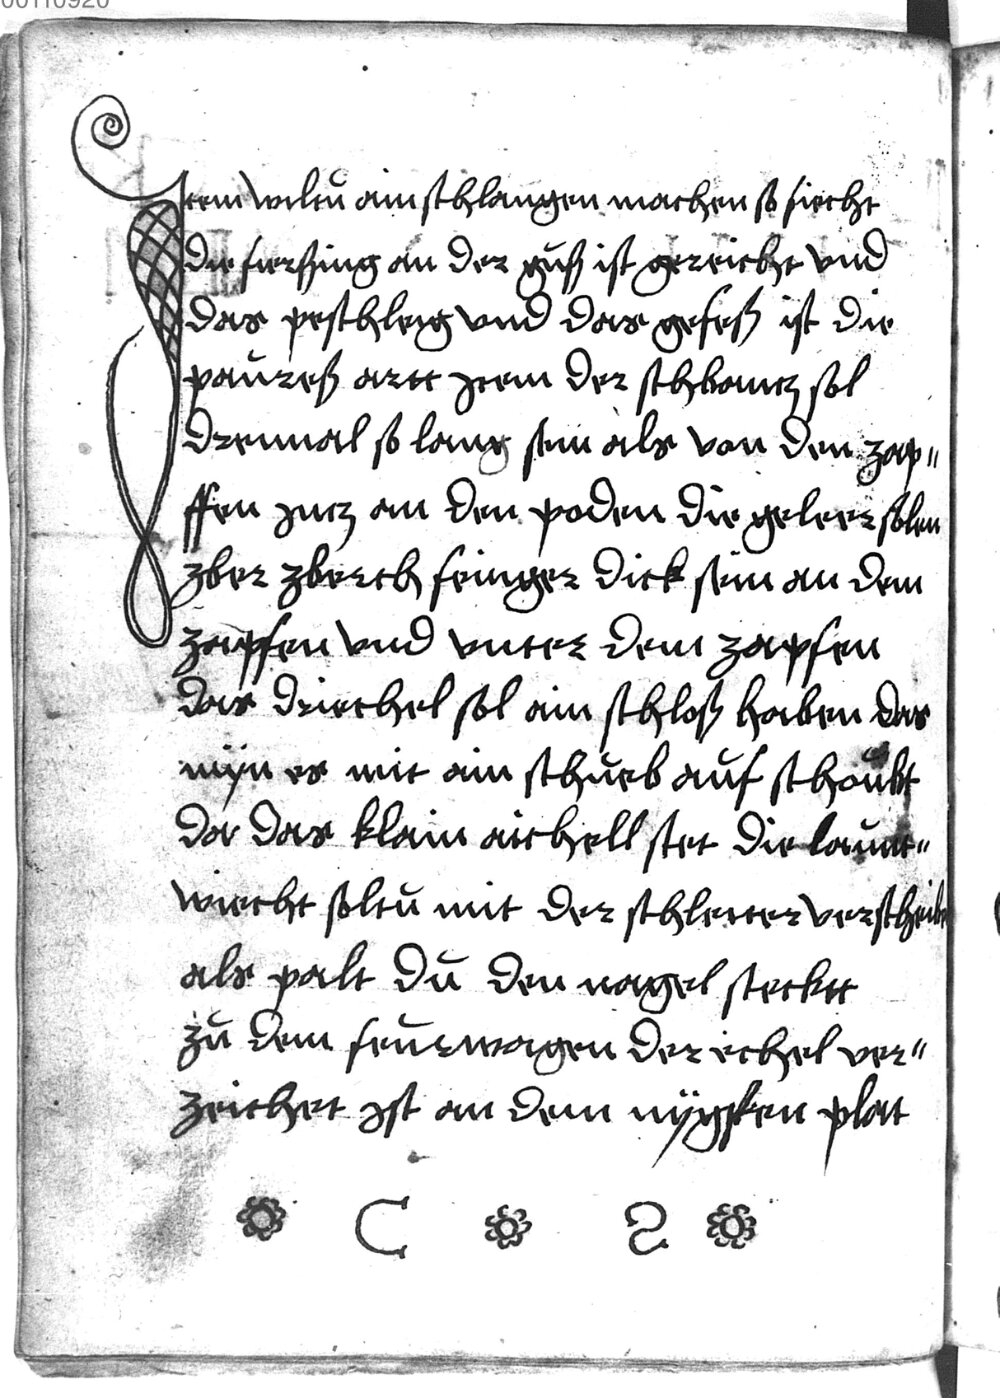 00110920
Item wiltu ain schlangen machen so siecht
die fierssing an der guß ist gereicht vnd
das peschleg vnd das gefeß ist die
paureß artt Item der schbantz sol
dreumal so lang sein als von den zap„
ffen intz an den poden die geleer solen
zber zberch feinger dick sein an dem
zapfen vnd vnter dem zapfen
das driechel sol ain schloß haben das
myn es mit ain schueb auf schoubt
do das klain aichell stet die lautt„
wiecht soltu mit der schletter verscheibn
als palt du den nagel stecktt
zu dem feurwagen der echel ver„
zeichet ist an dem nygsten plat
C S